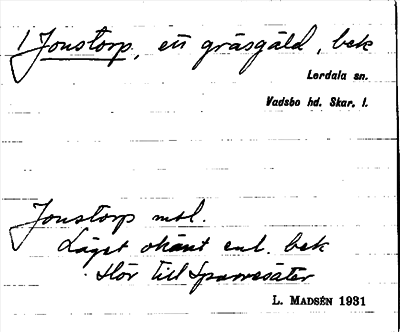 1 Jonstorp, ett gräsgäld, bek
Lerdala sn.
Vadsbo hd. Skar. l.
Jonstorp mbl.
Läget okänt enl. bek
Hör till Sparresäter
L. MADSÉN 1931